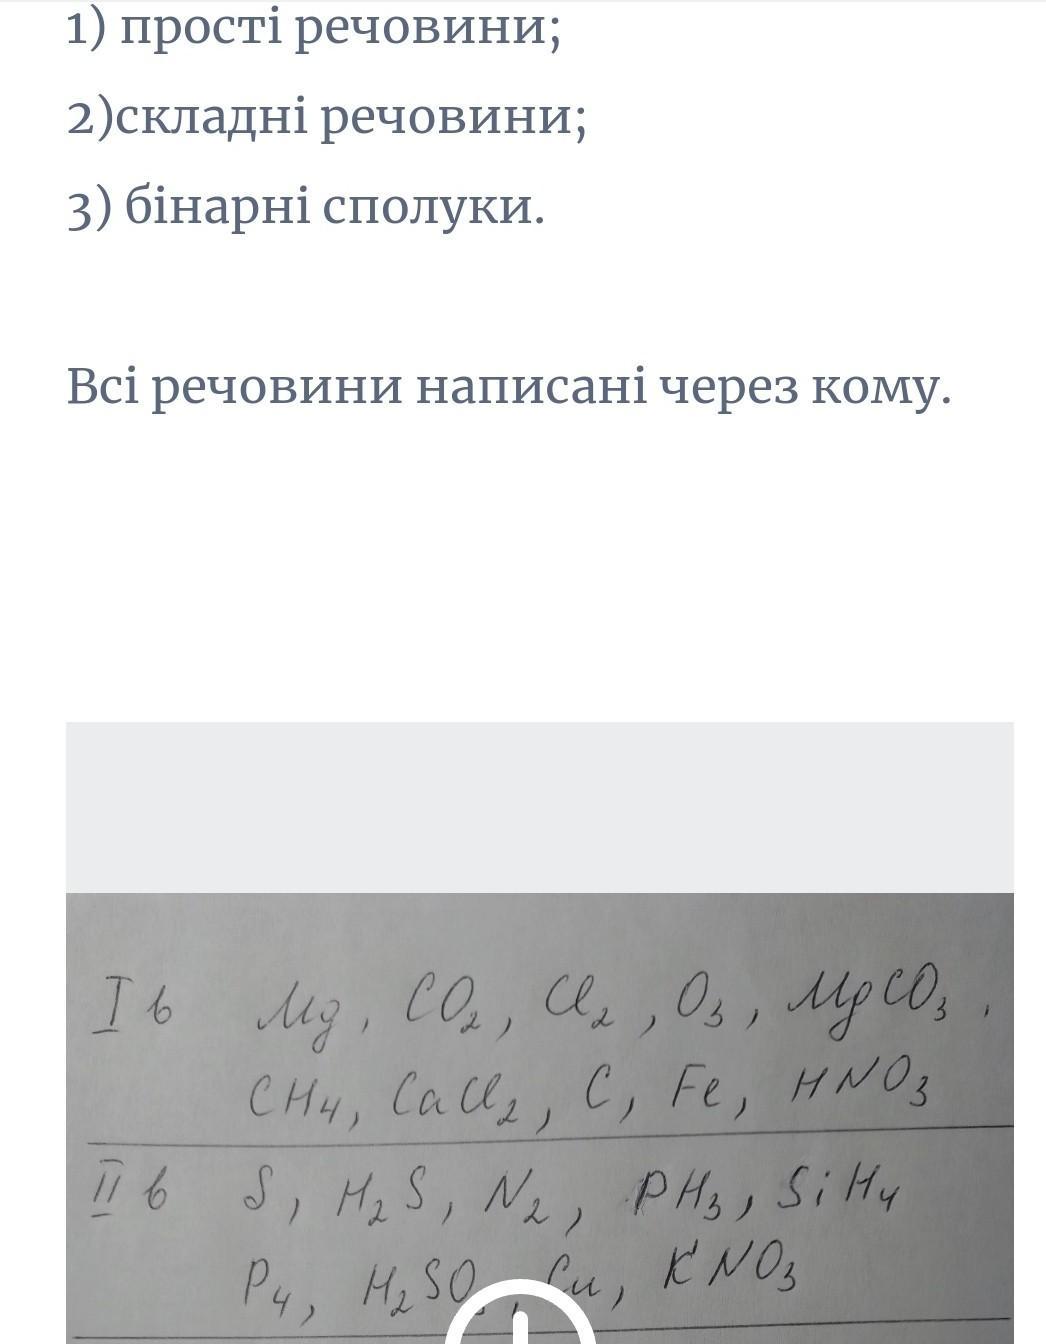 1) прості речовини;
2)складні речовини;
3) бінарні сполуки.
Всі речовини написані через кому.
I в Mg, CO₂, Cl₂, O₃, MgCO₃,
CH₄, CaCl₂, C, Fe, HNO₃
II в S, H₂S, N₂, PH₃, SiH₄
P₄, Cu, KNO₃